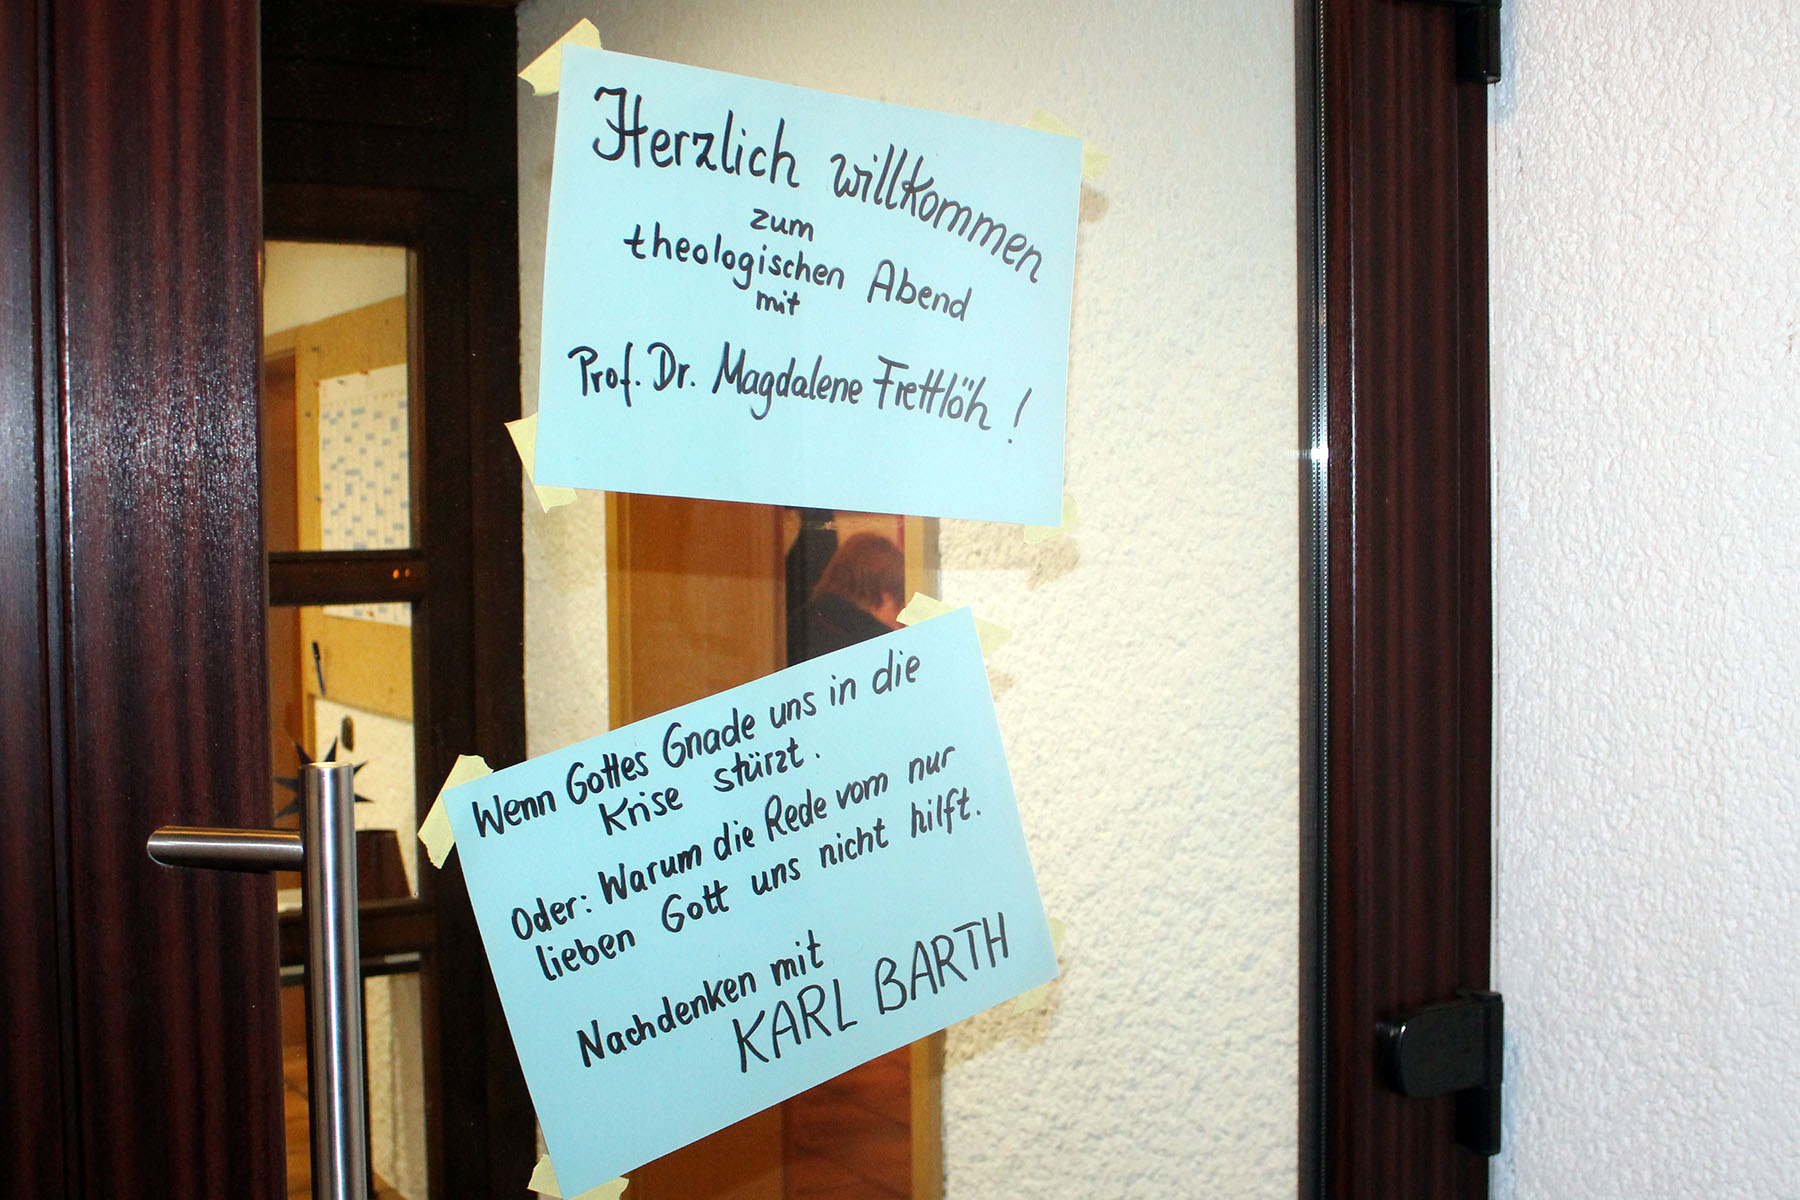 Herzlich willkommen
zum
theologischen Abend
mit
Prof. Dr. Magdalene Frettlöh!
Wenn Gottes Gnade uns in die
Krise stürzt.
Oder: Warum die Rede vom nur
lieben Gott uns nicht hilft.
Nachdenken mit
KARL BARTH